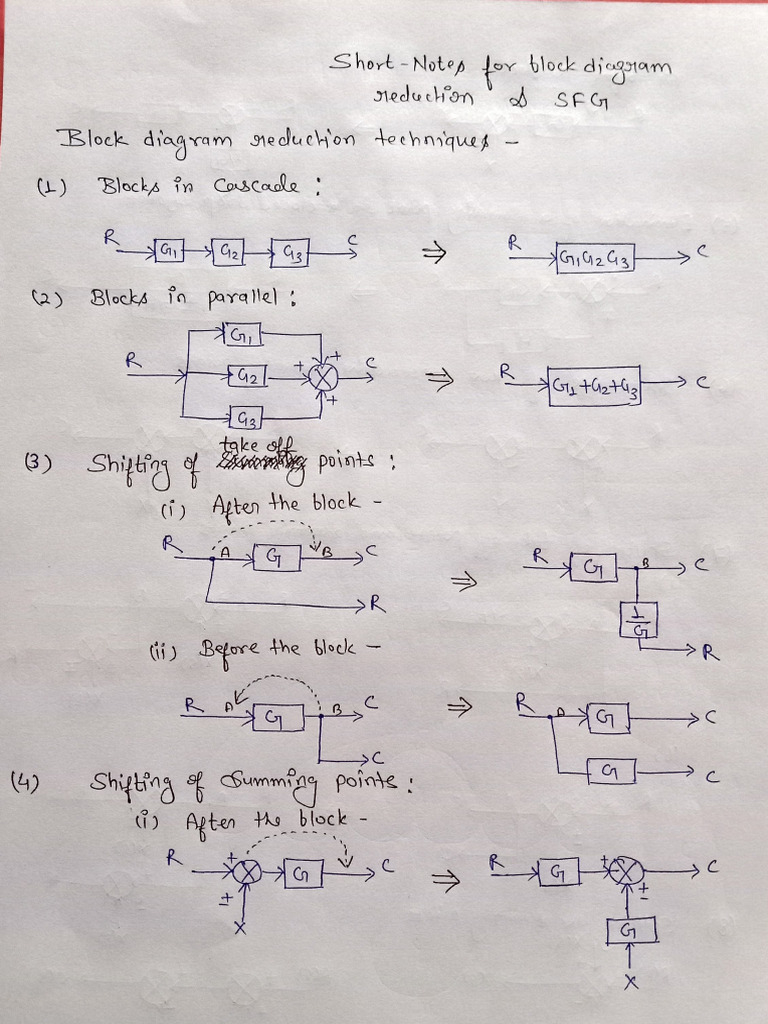 Short-Notes for block diagram
reduction & SFG
Block diagram reduction techniques -
(1) Blocks in Cascade :
R G1 G2 G3 C ⇒ R G1G2G3 C
(2) Blocks in parallel :
G1 +
R G2 + C ⇒ R G1+G2+G3 C
G3 +
take off
(3) Shifting of points :
(i) After the block -
R A G B C ⇒ R G B C
R 1/G R
(ii) Before the block -
R A G B C ⇒ R A G C
C G C
(4) Shifting of Summing points :
(i) After the block -
R + G C ⇒ R G + C
± ±
X G
X